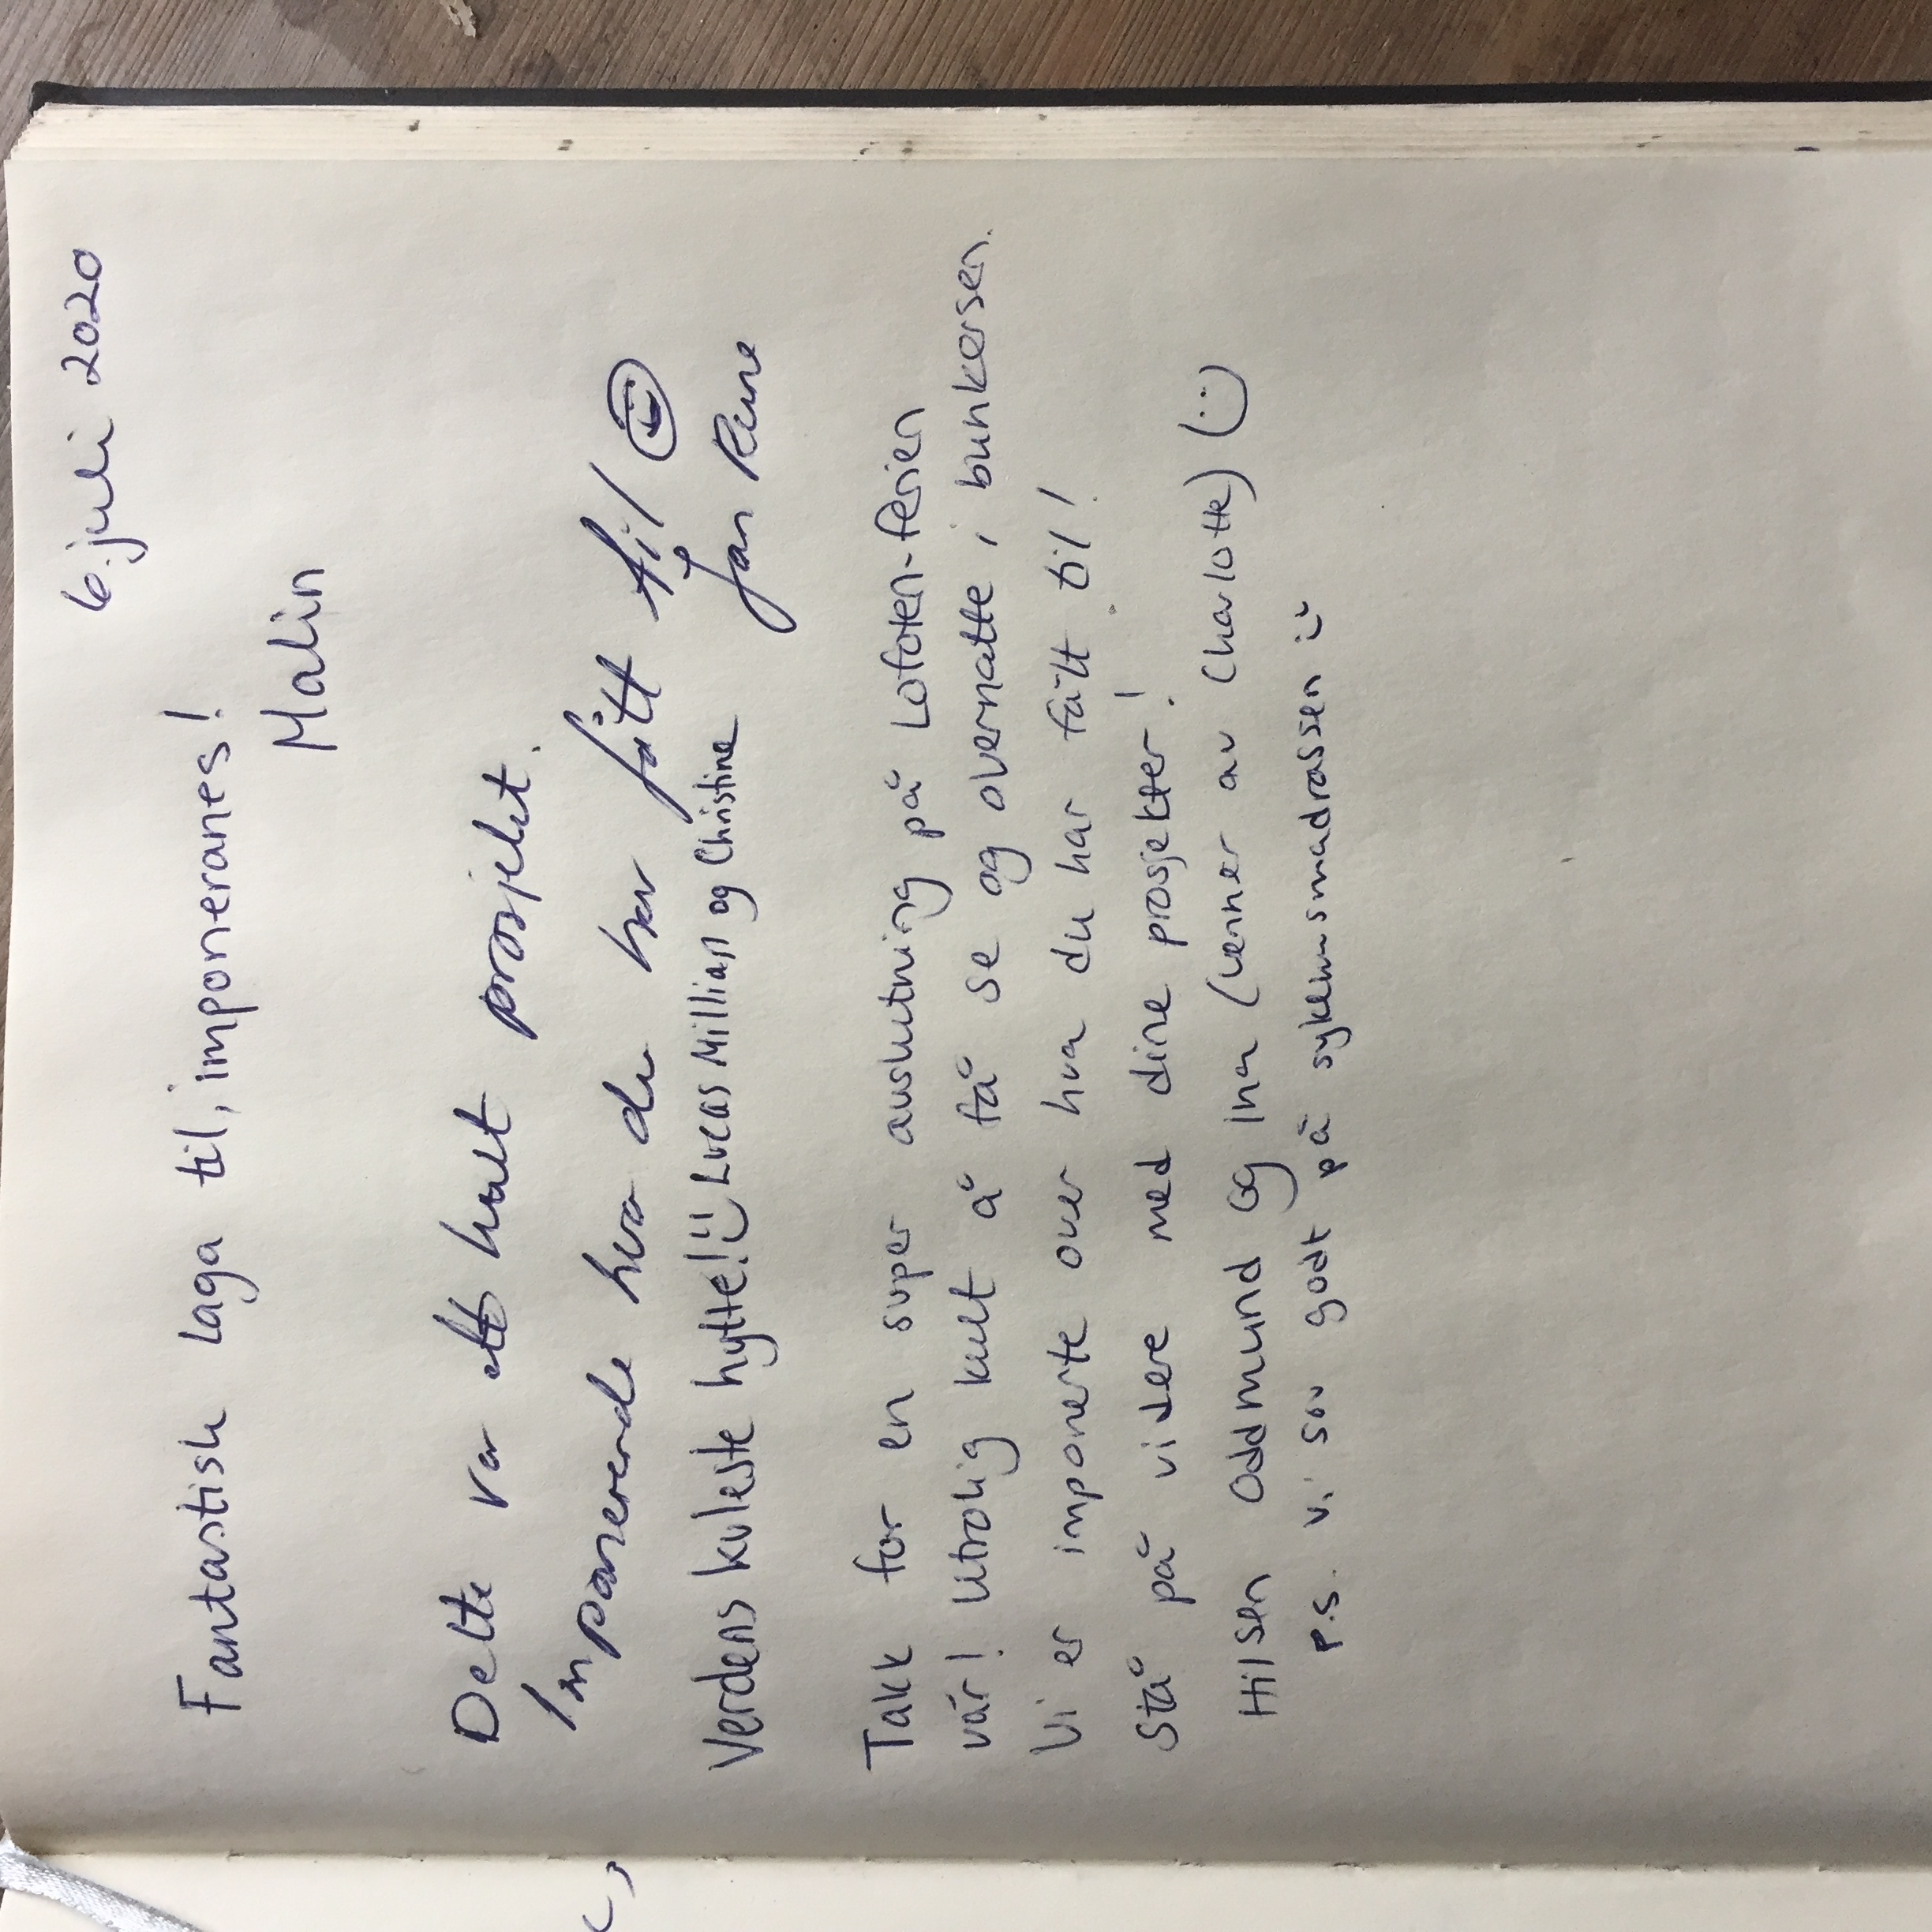 6. juli 2020
Fantastisk laga til, imponeranes!
Malin
Dette var ett kult prosjekt.
Imponerende hva du har fått til ☺
Jan Rune
Verdens kuleste hytte! :) Lucas Millian og Christine
Takk for en super avslutning på Lofoten-ferien
vår! Utrolig kult å få se og overnatte i bunkersen.
Vi er imponerte over hva du har fått til!
Stå på videre med dine prosjekter!
Hilsen Oddmund og Ina (venner av Charlotte) (:)
P.S. Vi sov godt på sykehusmadrassen :)